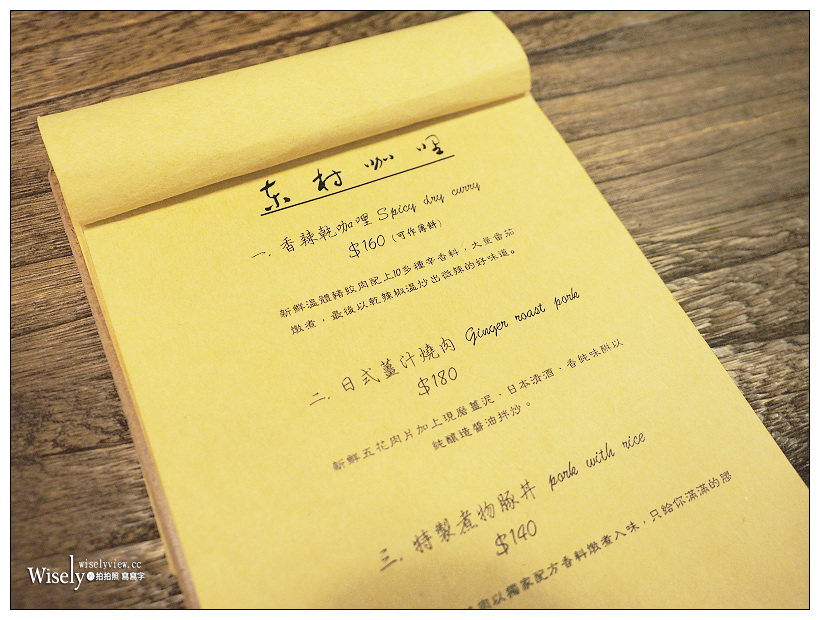 东村咖哩
一. 香辣乾咖哩 Spicy dry curry
$160 (可作薄餅)
新鮮溫體豬絞肉配上10多種辛香料，大量番茄
燉煮，最後以乾辣椒溫炒出微辣的好味道。
二. 日式薑汁燒肉 Ginger roast pork
$180
新鮮五花肉片加上現磨薑泥，日本清酒，香純味醂以
純釀造醬油拌炒。
三. 特製煮物豚丼 pork with rice
$140
以獨家配方香料燉煮入味，只給你滿滿的膠
Wisely wiselyview.cc
拍拍照 寫寫字